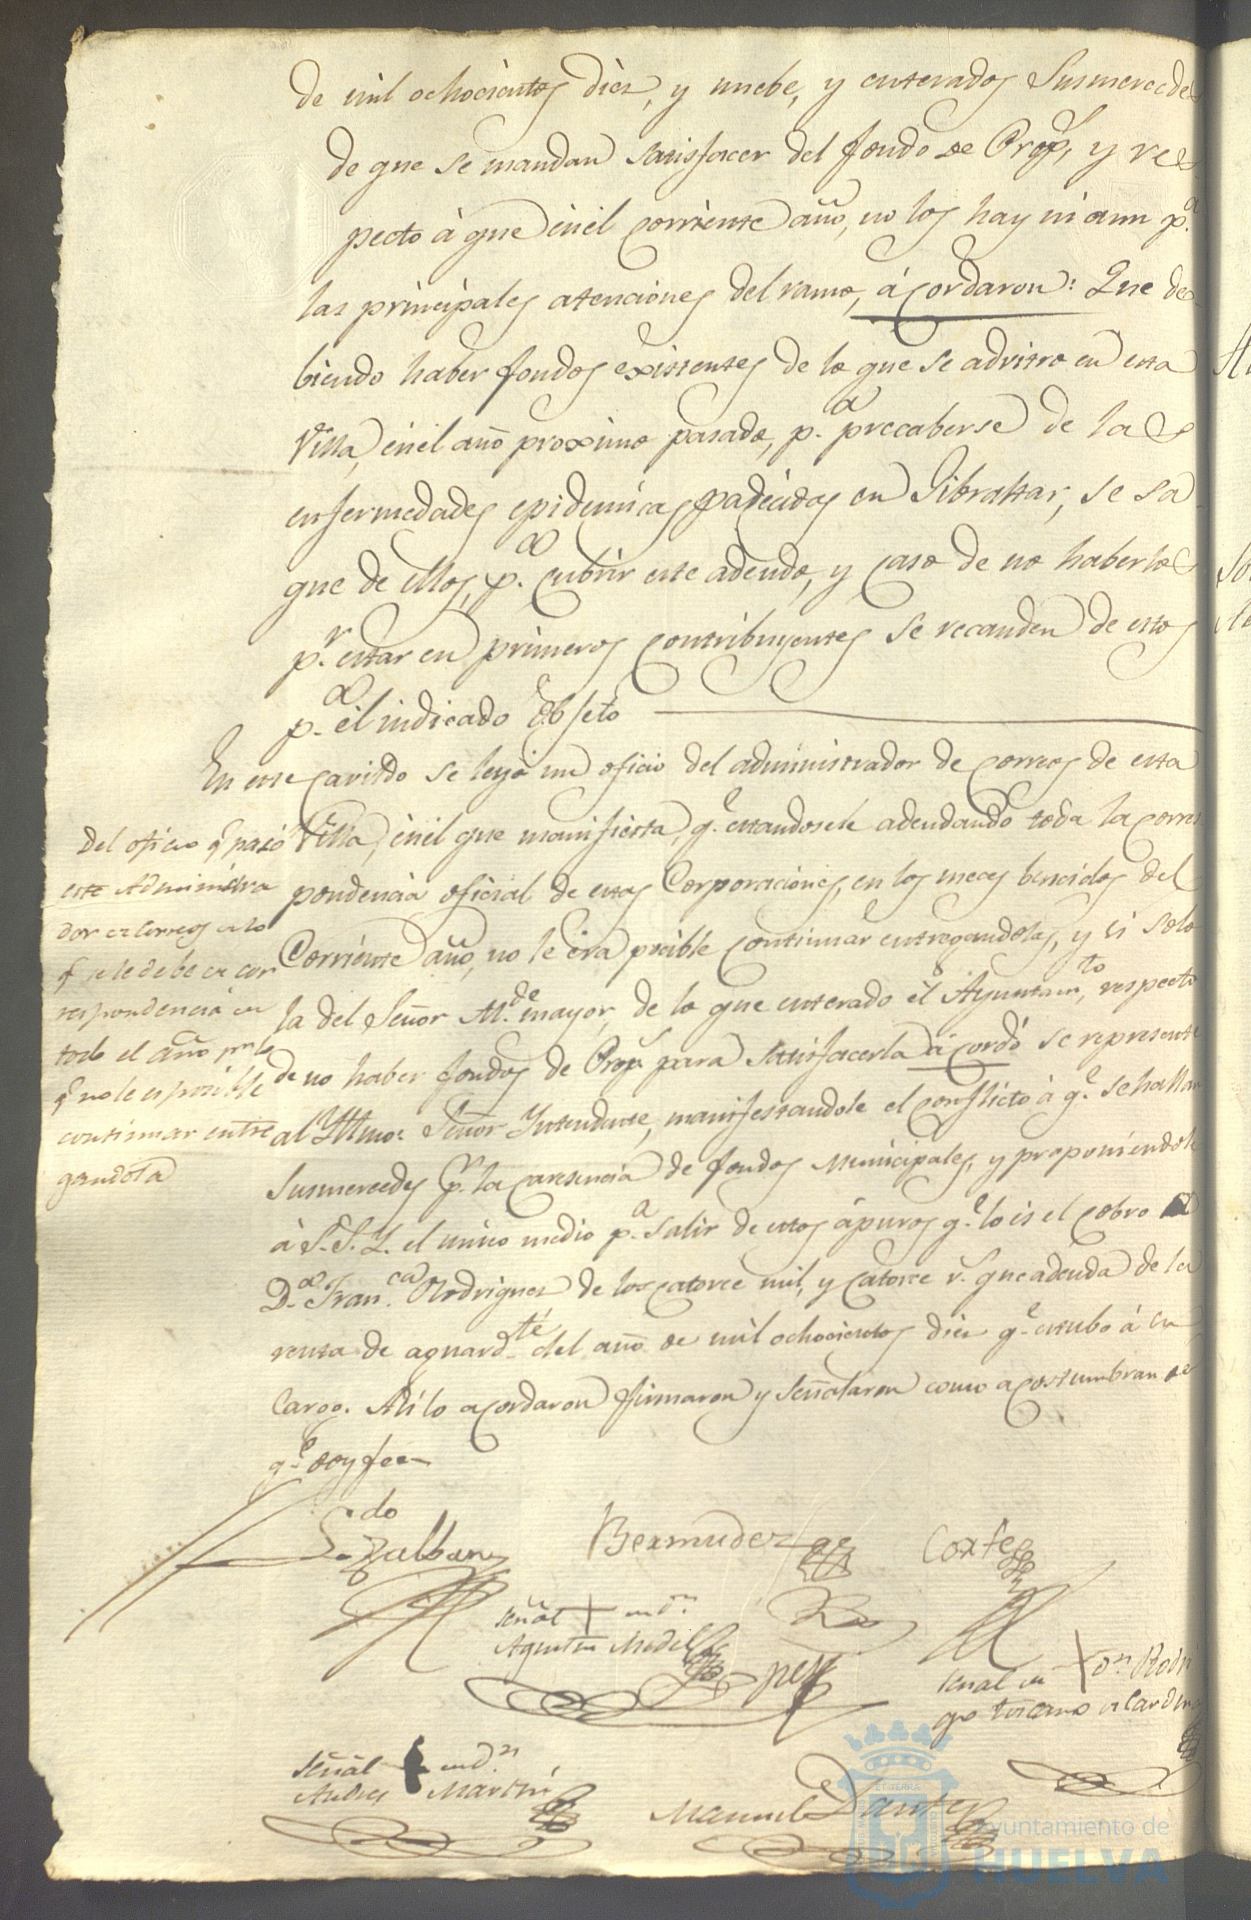 de mil ochocientos diez, y nuebe, y enterados Susmercedes
de que se mandan satisfacer del fondo de Prop.s, y res
pecto à que en el corriente año, no los hay ni aun p.a
las principales atenciones del ramo, acordaron: Que de
biendo haber fondos existentes de lo que se advitro en esta
Villa, en el año proximo pasado, p.a precaberse de las
enfermedades epidemicas padecidas en Gibraltar, se sa
que de ellos, p.a cubrir este adeudo, y caso de no haberlos
p.r estar en primeros contribuyentes se recauden de estos
p.a el indicado Objeto
En este cavildo se leyó un oficio del administrador de correos de esta
Villa, en el que manifiesta, q.e estandosele adeudando toda la corres
pondencia oficial de estas Corporaciones, en los meces bencidos del
Corriente año, no le era pocible continuar entregandolas, y si solo
la del Señor Al.de mayor, de lo que enterado el Ayuntam.to, respecto
de no haber fondos de Prop.s para satisfacerla acordó se represente
al Yltmo. Señor Yntendente, manifestandole el conflicto à q.e se hallan
Susmercedes p.r la caresencia de fondos Municipales, y proponiendole
à S.S.Y. el unico medio p.a salir de estos apuros q.e lo es el cobro
D.a Fran.ca Rodriguez de los catorce mil, y catorce r.s que adeuda de la
renta de aguard.te del año de mil ochocientos diez q.e estubo á su
Cargo. Asi lo acordaron firmaron y señalaron como acostumbran de
q.e doy fee
Del oficio q.e pasó
este Administra
dor de Correos de lo
q.e se le debe de cor
respondencia en
todo el año p.r lo
q.e no le es posible
continuar entre
gandola
L.do Zalban
Bermudez
Cortes
Señal + de D.n
Agustin Medel
Señal de + D.n Rodri
go Toscano de Cardenas
Señal + de D.n
Andres Martin
Manuel Dante
Ayuntamiento de
HUELVA